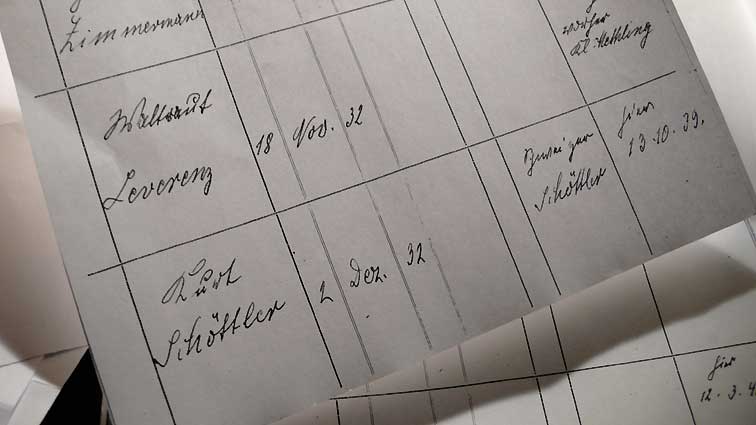 Zimmermann
vorher
Kl. Methling
Waltraut
Leverenz
18 Nov. 32
Kurt
Schöttler
2 Dez. 32
Schöttler
hier
13.10.39.
hier
12.3.4